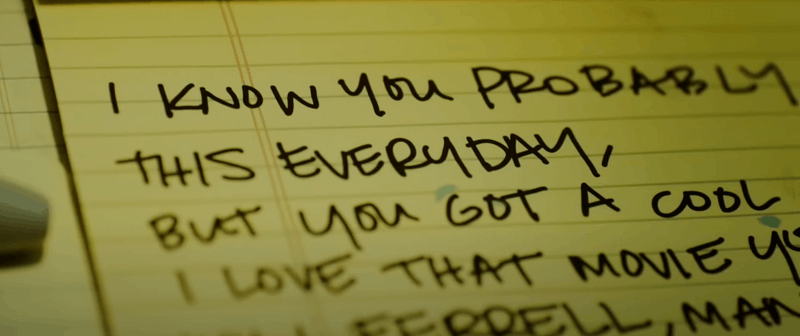 I KNOW YOU PROBABLY
THIS EVERYDAY,
BUT YOU GOT A COOL
I LOVE THAT MOVIE
FERRELL, MAN